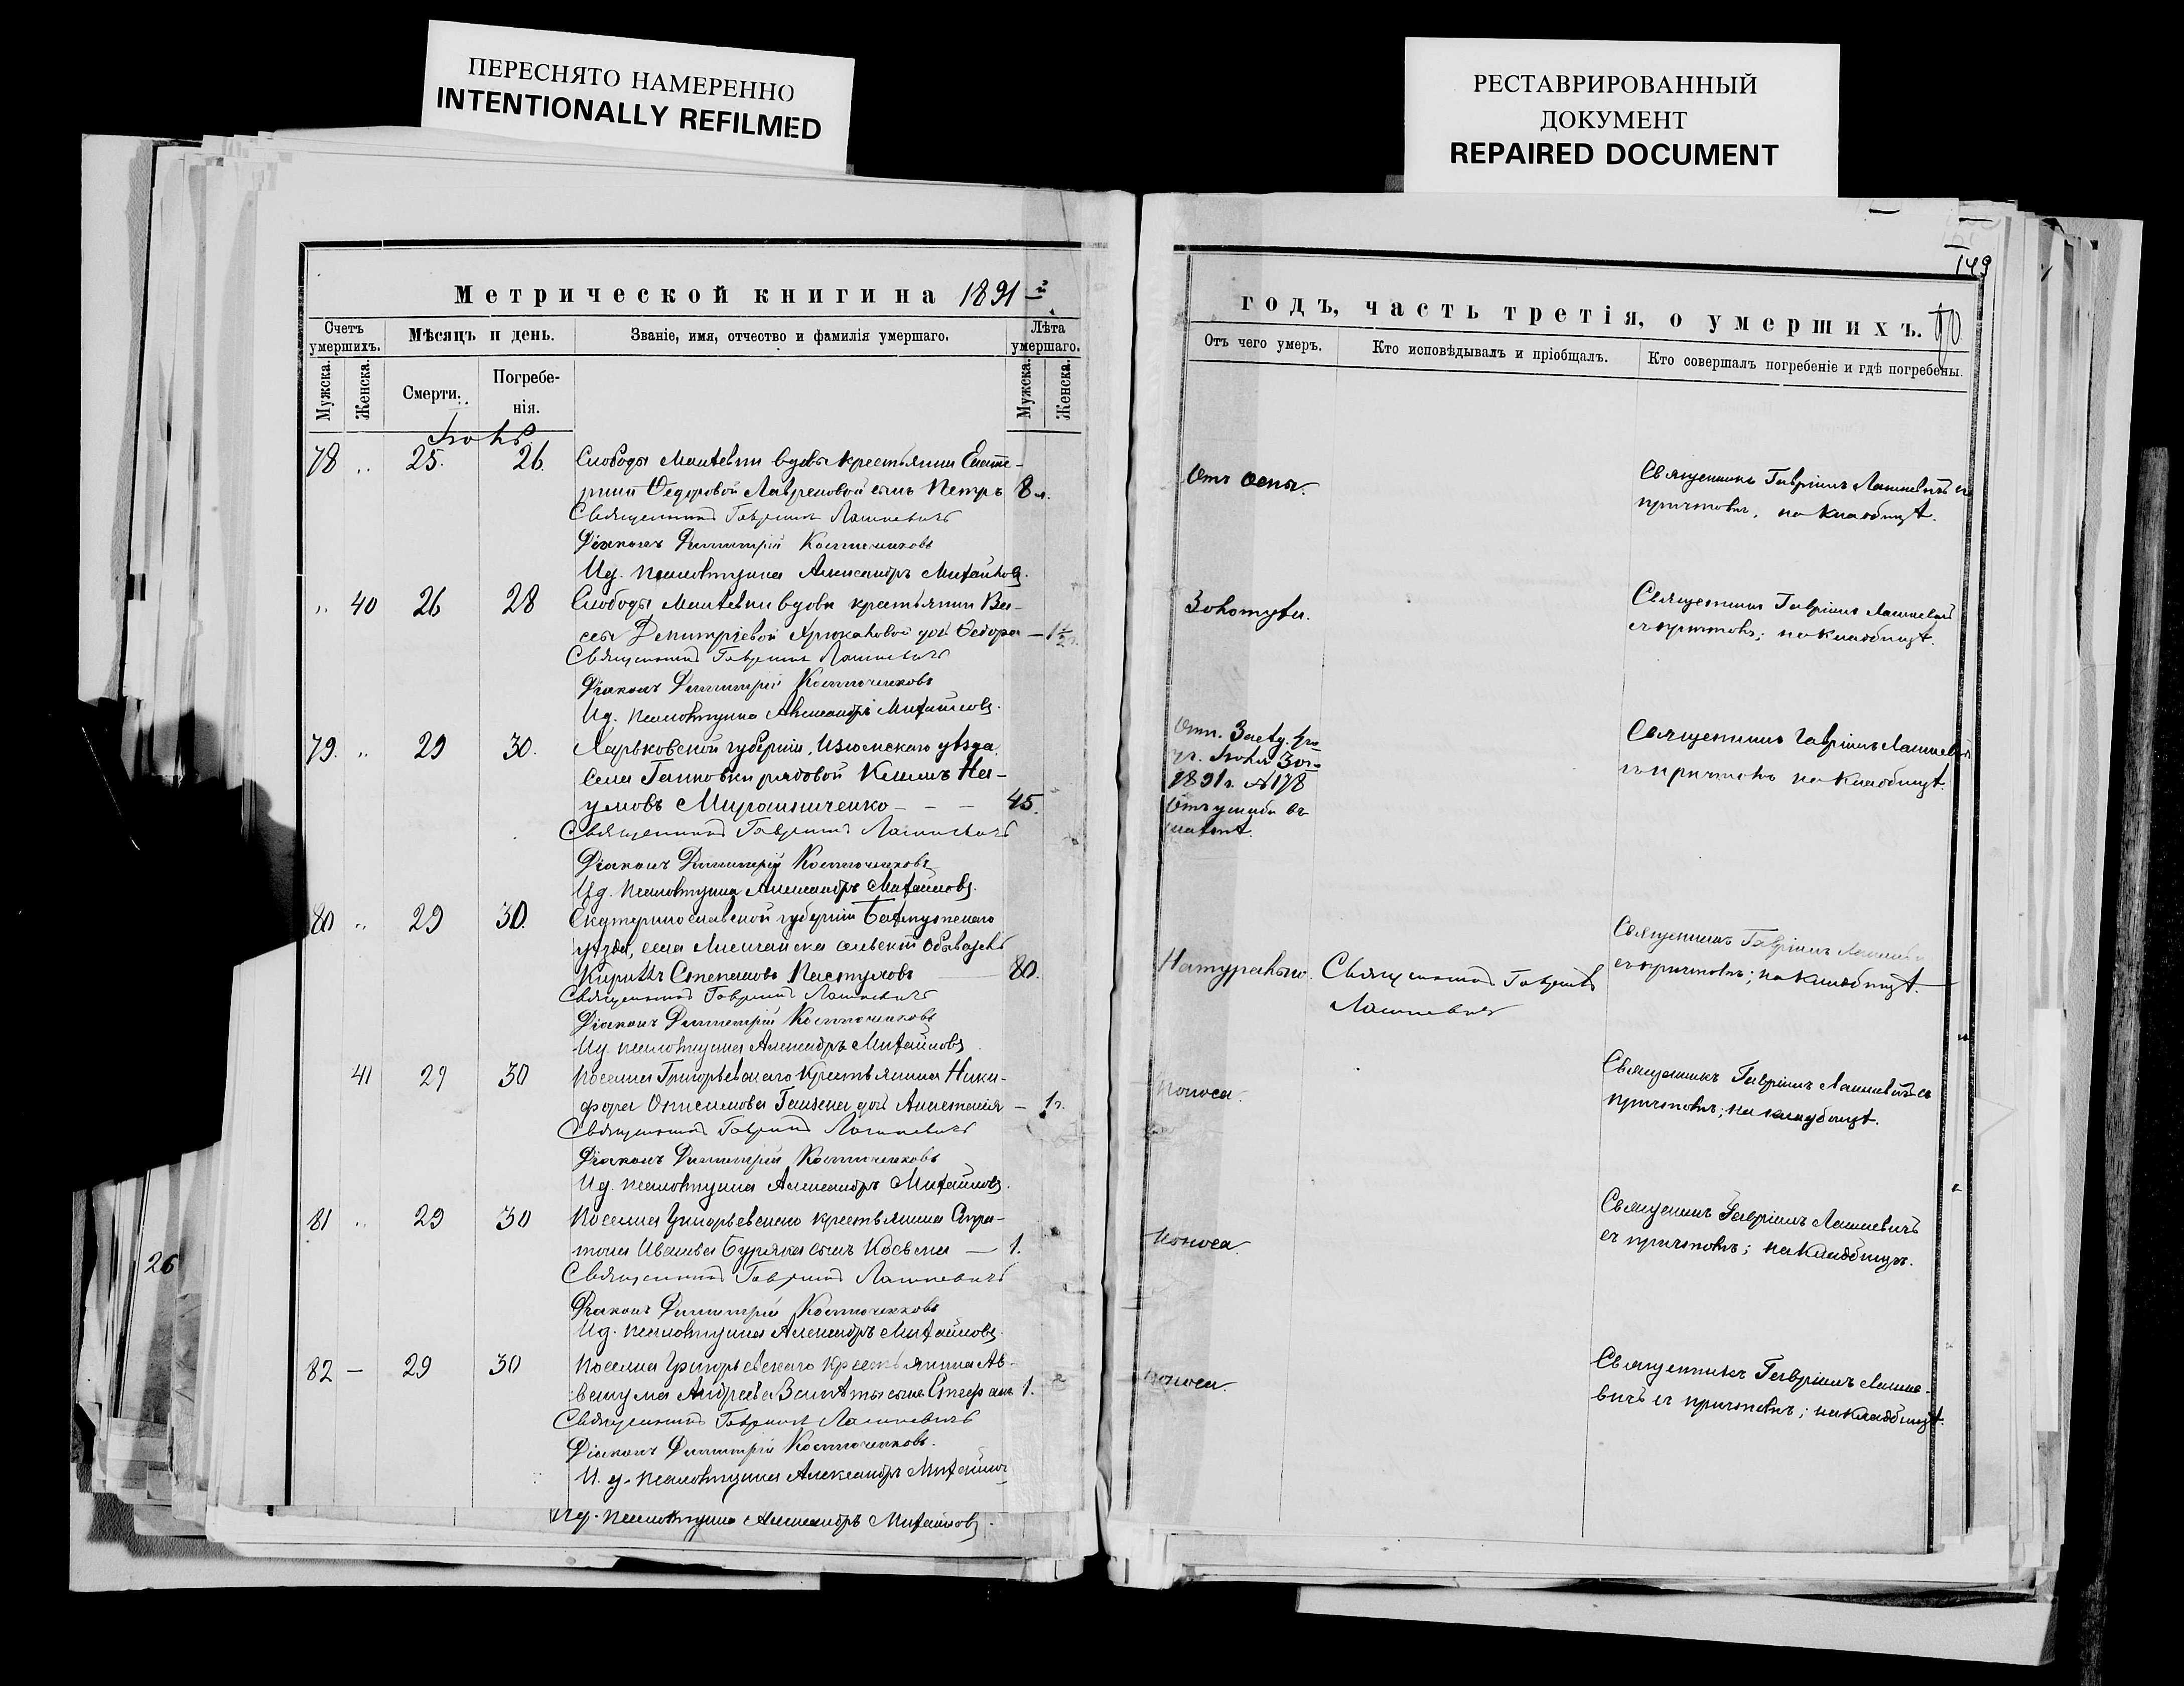 ПЕРЕСНЯТО НАМЕРЕННО
INTENTIONALLY REFILMED
РЕСТАВРИРОВАННЫЙ
ДОКУМЕНТ
REPAIRED DOCUMENT
149
Метрической книги на 1891-й
годъ, часть третія, о умершихъ.
Счетъ умершихъ.
Мѣсяцъ и день.
Званіе, имя, отчество и фамилія умершаго.
Лѣта умершаго.
Отъ чего умеръ.
Кто исповѣдывалъ и пріобщалъ.
Кто совершалъ погребеніе и гдѣ погребены.
Мужска.
Женска.
Смерти.
Погребе-
нія.
Мужска.
Женска.
78 " 25. 26. Слободы вдовы крестьянки
Ѳедоровой Лавреновой сынъ Петръ 8 л.
Священникъ Гавріилъ Лашкевичъ
Діаконъ Димитрій Костюченковъ
Ид. псаломщика Александръ Михайловъ.
Отъ оспы.
Священникъ Гавріилъ Лашкевичъ съ
причтомъ, на кладбищѣ.
" 40 26 28 Слободы вдовы крестьянки Ва-
сы Димитріевой дочь Ѳедора — 1½ г.
Священникъ Гавріилъ Лашкевичъ
Діаконъ Димитрій Костюченковъ
Ид. псаломщика Александръ Михайловъ.
Золотухи.
Священникъ Гавріилъ Лашкевичъ
съ причтомъ; на кладбищѣ.
79. " 29 30. Харьковской губерніи, Изюмскаго уѣзда,
села рядовой На-
умовъ Мирошниченко — — — 45.
Священникъ Гавріилъ Лашкевичъ
Діаконъ Димитрій Костюченковъ
Ид. псаломщика Александръ Михайловъ.
1891 г. №178
Отъ ушиба въ
шахтѣ.
Священникъ Гавріилъ Лашкевичъ
съ причтомъ на кладбищѣ.
80 " 29 30. Екатеринославской губерніи Бахмутскаго
уѣзда, села Лисичанска сельскій обыватель
Степановъ Пастуховъ — 80.
Священникъ Гавріилъ Лашкевичъ
Діаконъ Димитрій Костюченковъ
Ид. псаломщика Александръ Михайловъ
Натурально.
Священникъ Гавріилъ
Лашкевичъ
Священникъ Гавріилъ Лашкевичъ
съ причтомъ; на кладбищѣ.
41 29 30 Поселка Григорьевскаго крестьянина Ники-
фора Онисимова дочь Анастасія — 1 г.
Священникъ Гавріилъ Лашкевичъ
Діаконъ Димитрій Костюченковъ
Ид. псаломщика Александръ Михайловъ.
Поноса.
Священникъ Гавріилъ Лашкевичъ съ
причтомъ; на кладбищѣ.
81 " 29 30 Поселка Григорьевскаго крестьянина
Иванова Буряка сынъ — 1.
Священникъ Гавріилъ Лашкевичъ
Діаконъ Димитрій Костюченковъ
Ид. псаломщика Александръ Михайловъ.
Поноса.
Священникъ Гавріилъ Лашкевичъ
съ причтомъ; на кладбищѣ.
82 — 29 30 Поселка Григорьевскаго крестьянина Ав-
вакума Андреева сынъ Стефанъ 1.
Священникъ Гавріилъ Лашкевичъ
Діаконъ Димитрій Костюченковъ.
И. д. псаломщика Александръ Михайлов
Ид. псаломщика Александръ Михайловъ.
Поноса.
Священникъ Гавріилъ Лашке-
вичъ съ причтомъ; на кладбищѣ.
26